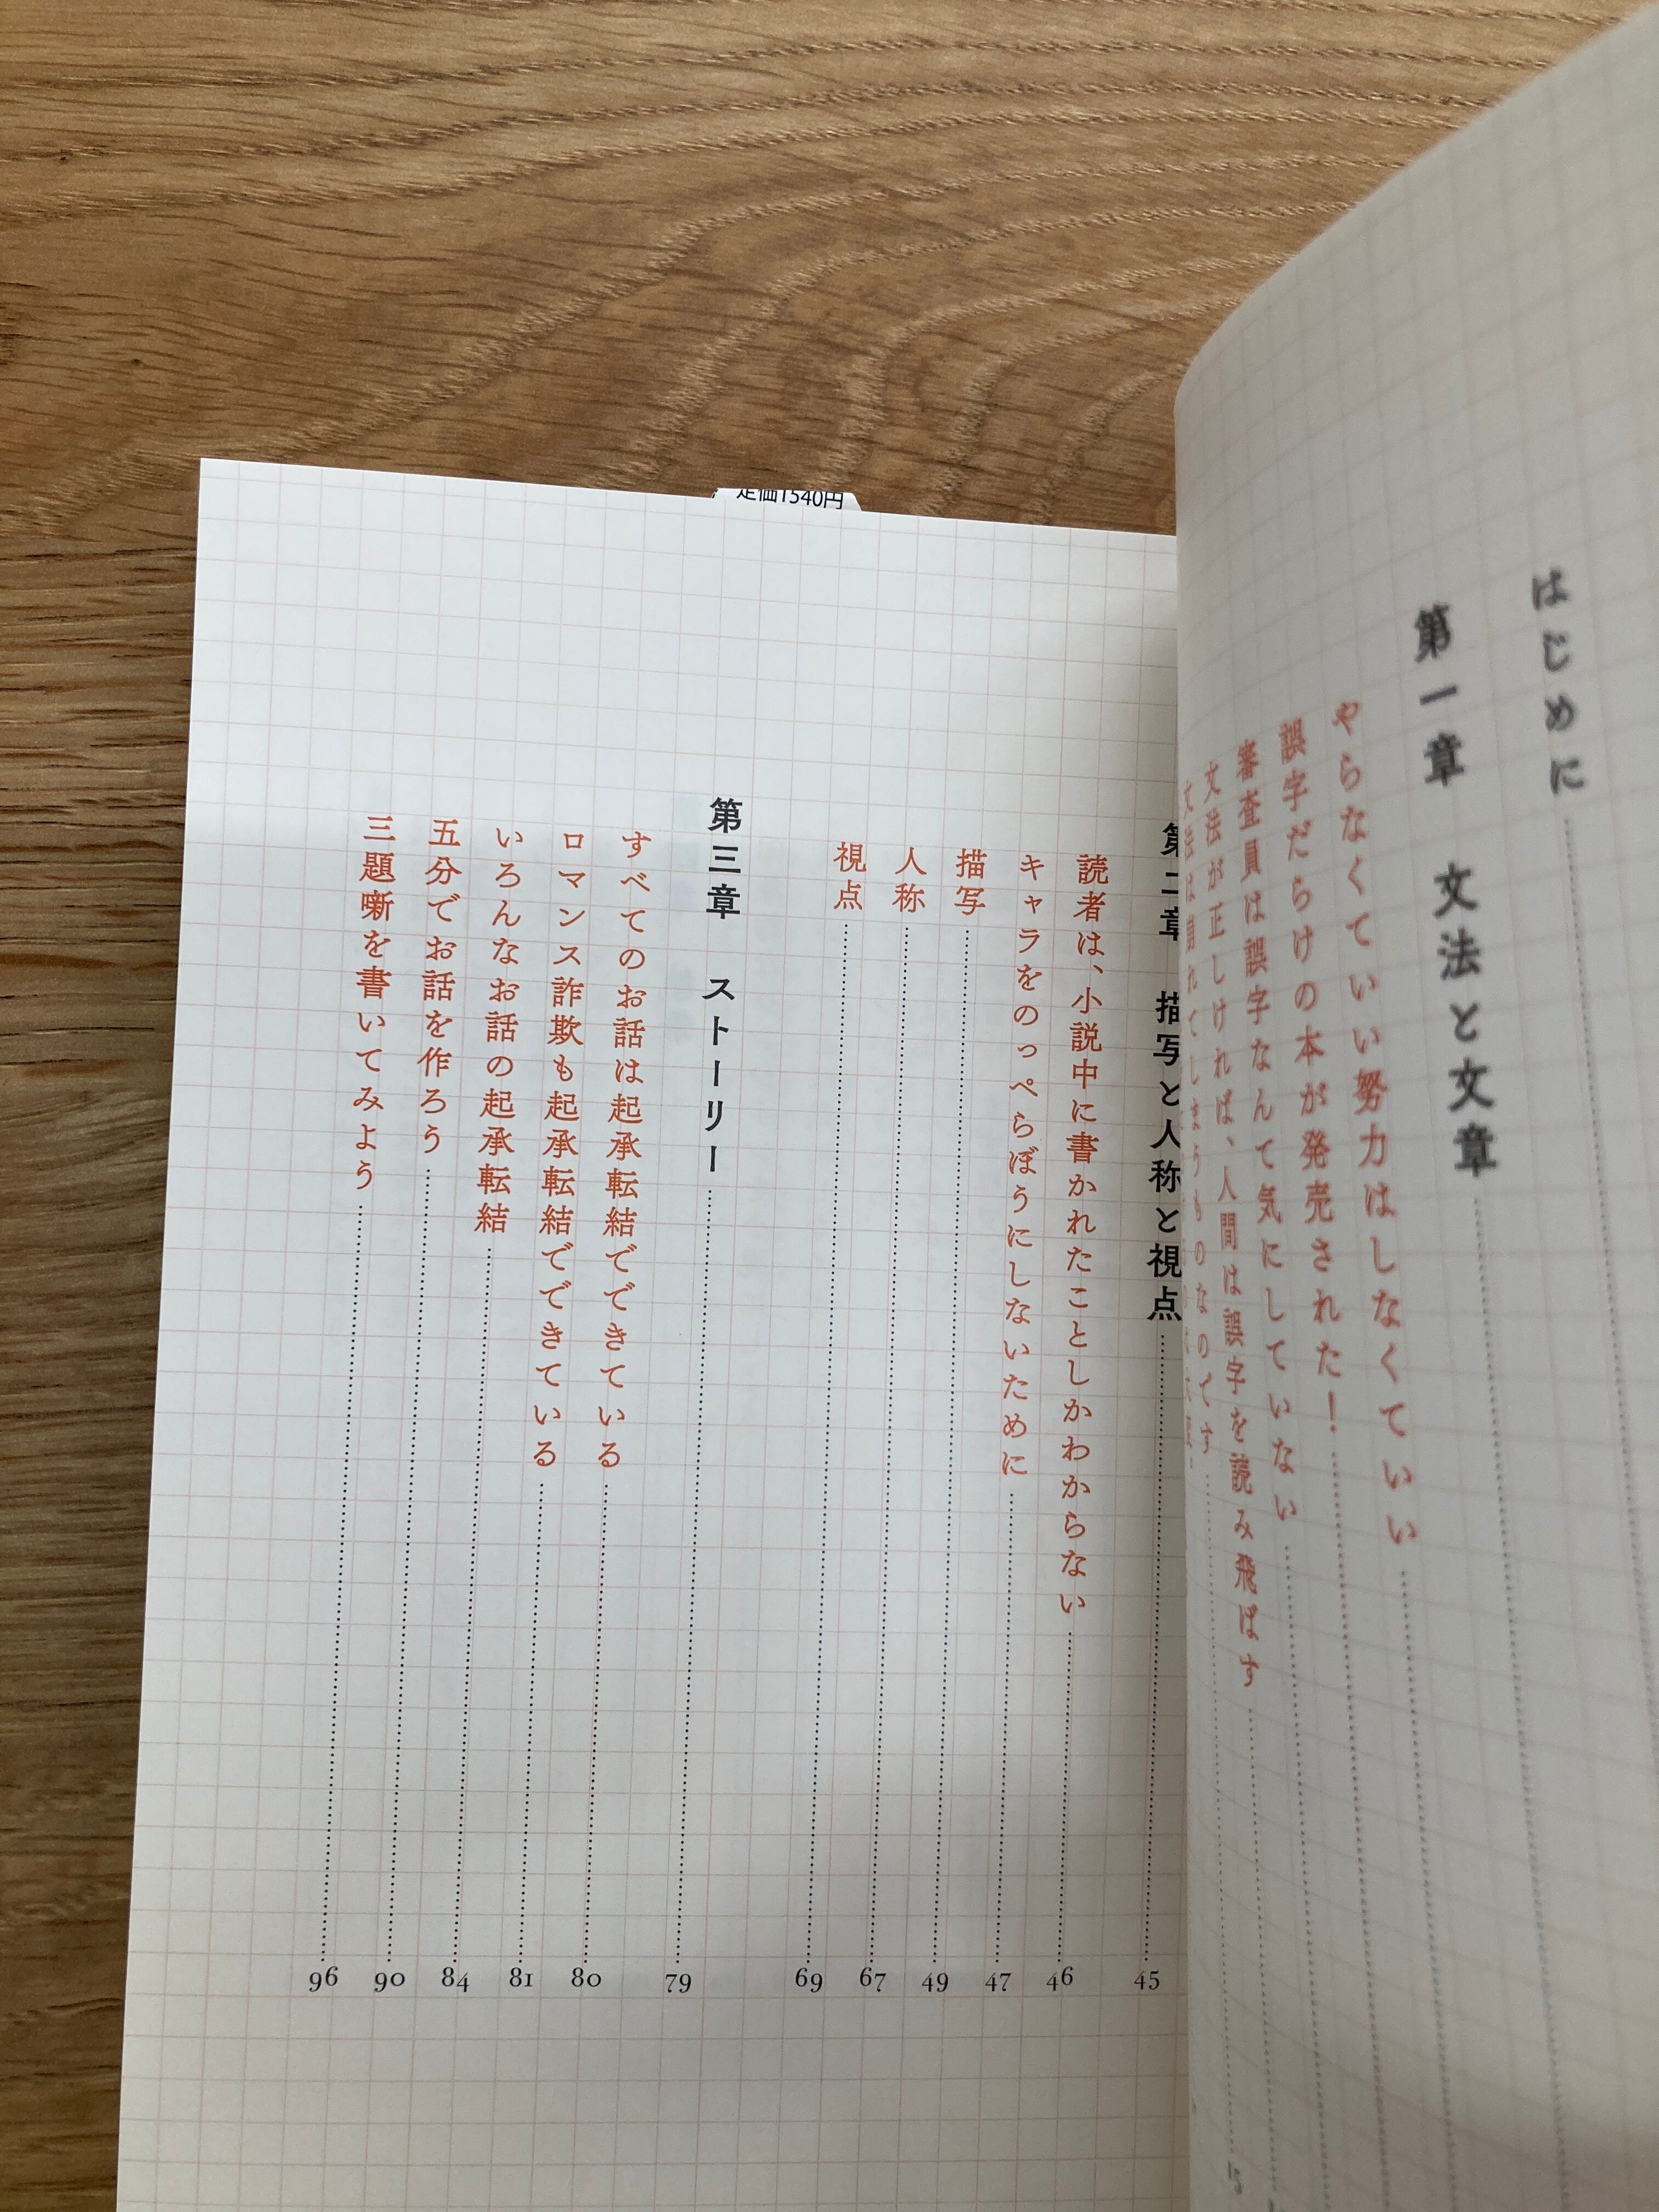 定価1540円
はじめに
第一章 文法と文章
やらなくていい努力はしなくていい
誤字だらけの本が発売された!
審査員は誤字なんて気にしていない
文法が正しければ、人間は誤字を読み飛ばす
文法は崩れてしまうものなのです
15
第二章 描写と人称と視点 45
読者は、小説中に書かれたことしかわからない 46
キャラをのっぺらぼうにしないために 47
描写 49
人称 67
視点 69
第三章 ストーリー 79
すべてのお話は起承転結でできている 80
ロマンス詐欺も起承転結でできている 81
いろんなお話の起承転結 84
五分でお話を作ろう 90
三題噺を書いてみよう 96